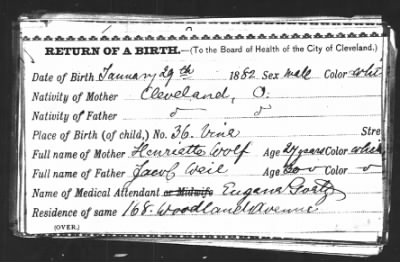 RETURN OF A BIRTH.—(To the Board of Health of the City of Cleveland.)
Date of Birth January 29th 1882 Sex male Color whit
Nativity of Mother Cleveland, O.
Nativity of Father " "
Place of Birth (of child,) No. 36. Vine Stre
Full name of Mother Henriette Wolf Age 24 years Color white
Full name of Father Jacob Weil Age 30 " Color "
Name of Medical Attendant or Midwife Eugana
Residence of same 168. Woodland Avenue
(OVER.)